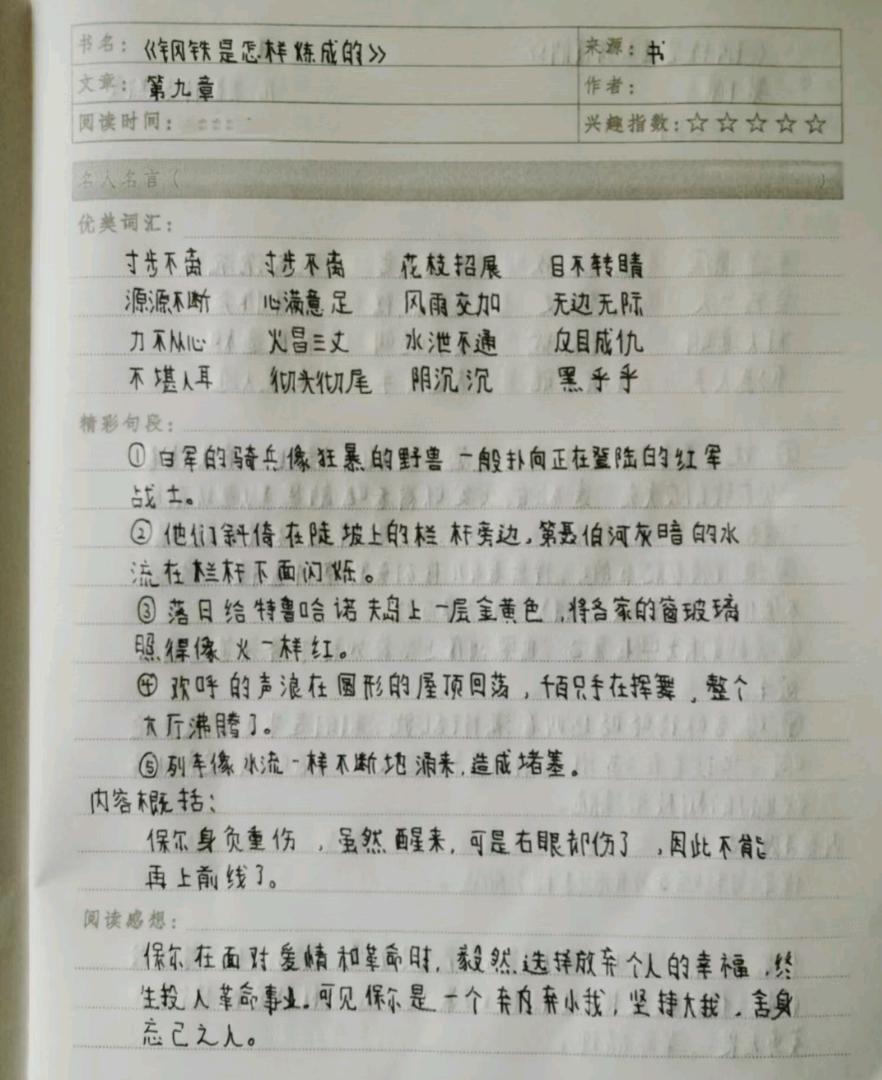 书名：《钢铁是怎样炼成的》 来源：书
文章：第九章 作者：
阅读时间： 兴趣指数：☆☆☆☆☆
名人名言（ ）
优美词汇：
寸步不离 寸步不离 花枝招展 目不转睛
源源不断 心满意足 风雨交加 无边无际
力不从心 火冒三丈 水泄不通 反目成仇
不堪入耳 彻头彻尾 阴沉沉 黑乎乎
精彩句段：
①白军的骑兵像狂暴的野兽一般扑向正在登陆的红军
战士。
②他们斜倚在陡坡上的栏杆旁边，第聂伯河灰暗的水
流在栏杆下面闪烁。
③落日给特鲁哈诺夫岛上一层金黄色，将各家的窗玻璃
照得像火一样红。
④欢呼的声浪在圆形的屋顶回荡，千百只手在挥舞，整个
大厅沸腾了。
⑤列车像水流一样不断地涌来，造成堵塞。
内容概括：
保尔身负重伤，虽然醒来，可是右眼却伤了，因此不能
再上前线了。
阅读感想：
保尔在面对爱情和革命时，毅然选择放弃个人的幸福，终
生投入革命事业。可见保尔是一个弃小我，坚持大我，舍身
忘己之人。